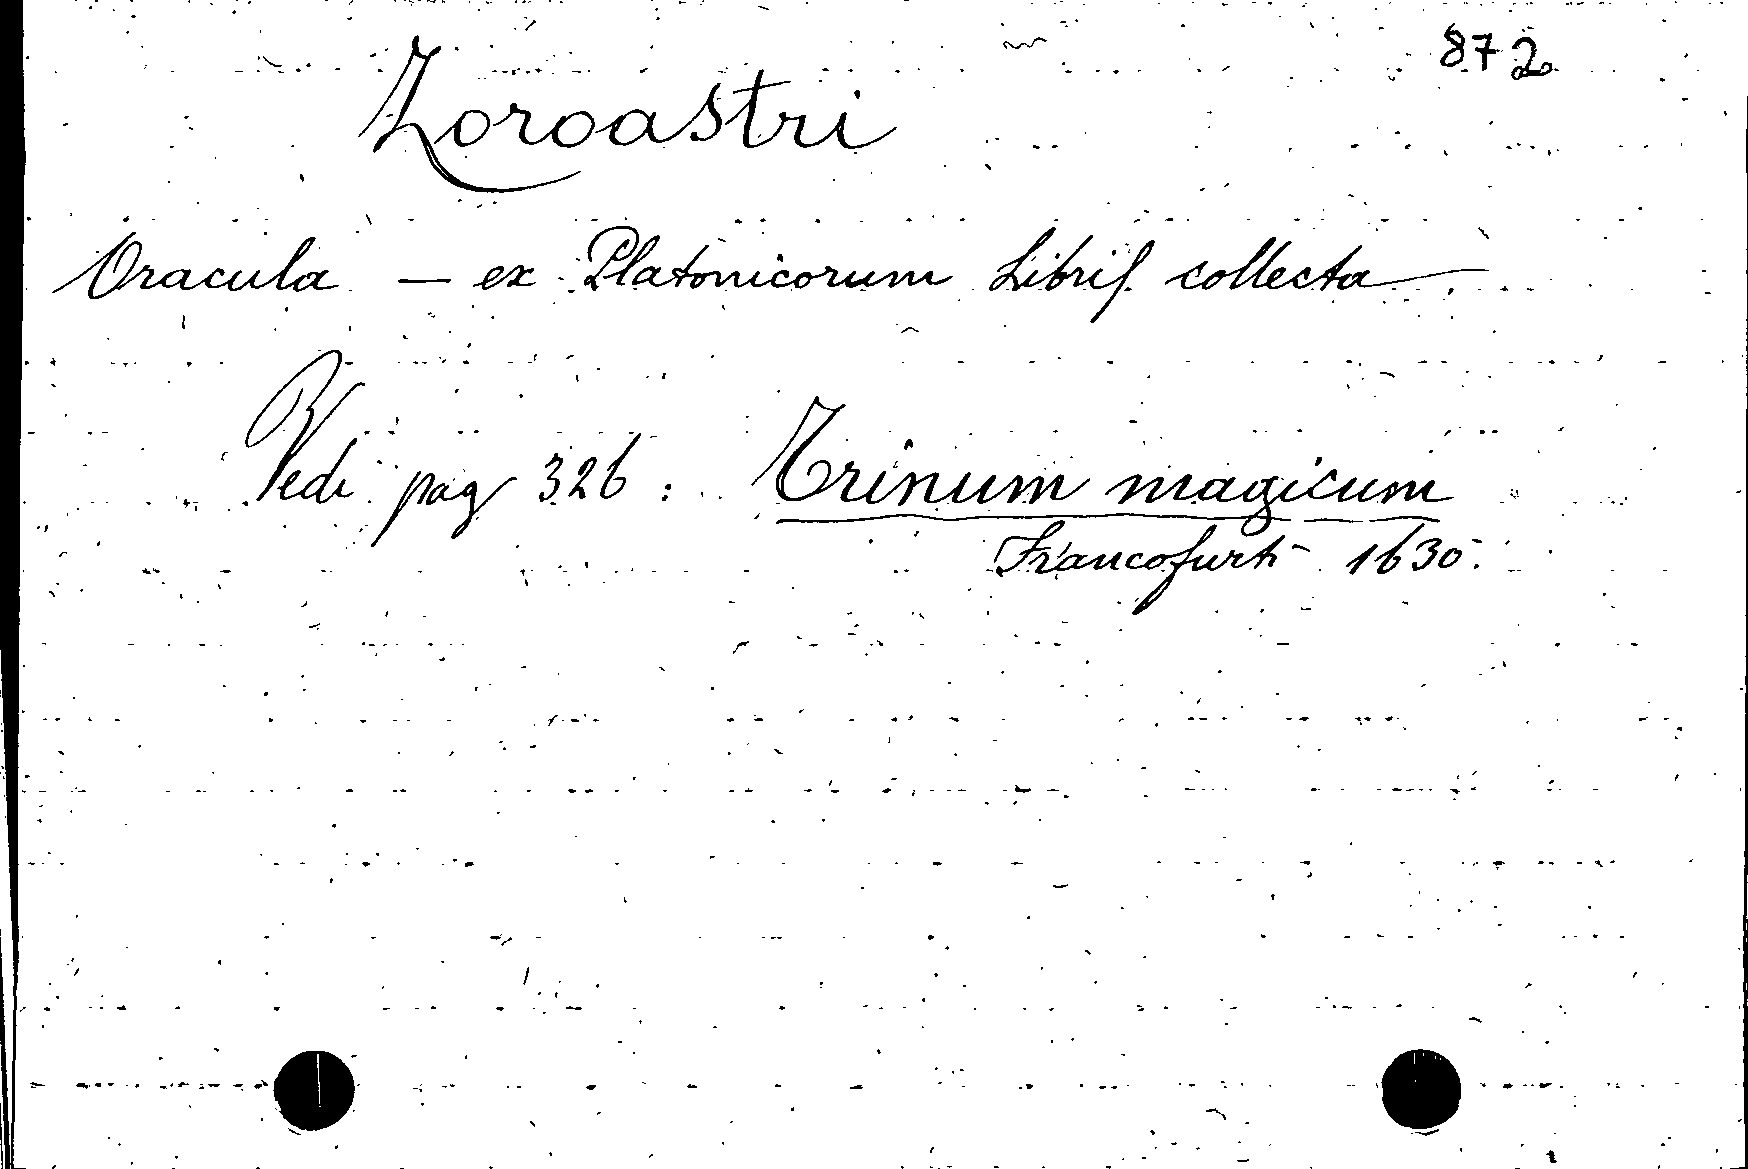 872
Zoroastri
Oracula — ex Platonicorum Libris collecta
Vedi pag 326 : Trinum magicum
Francofurti 1630.